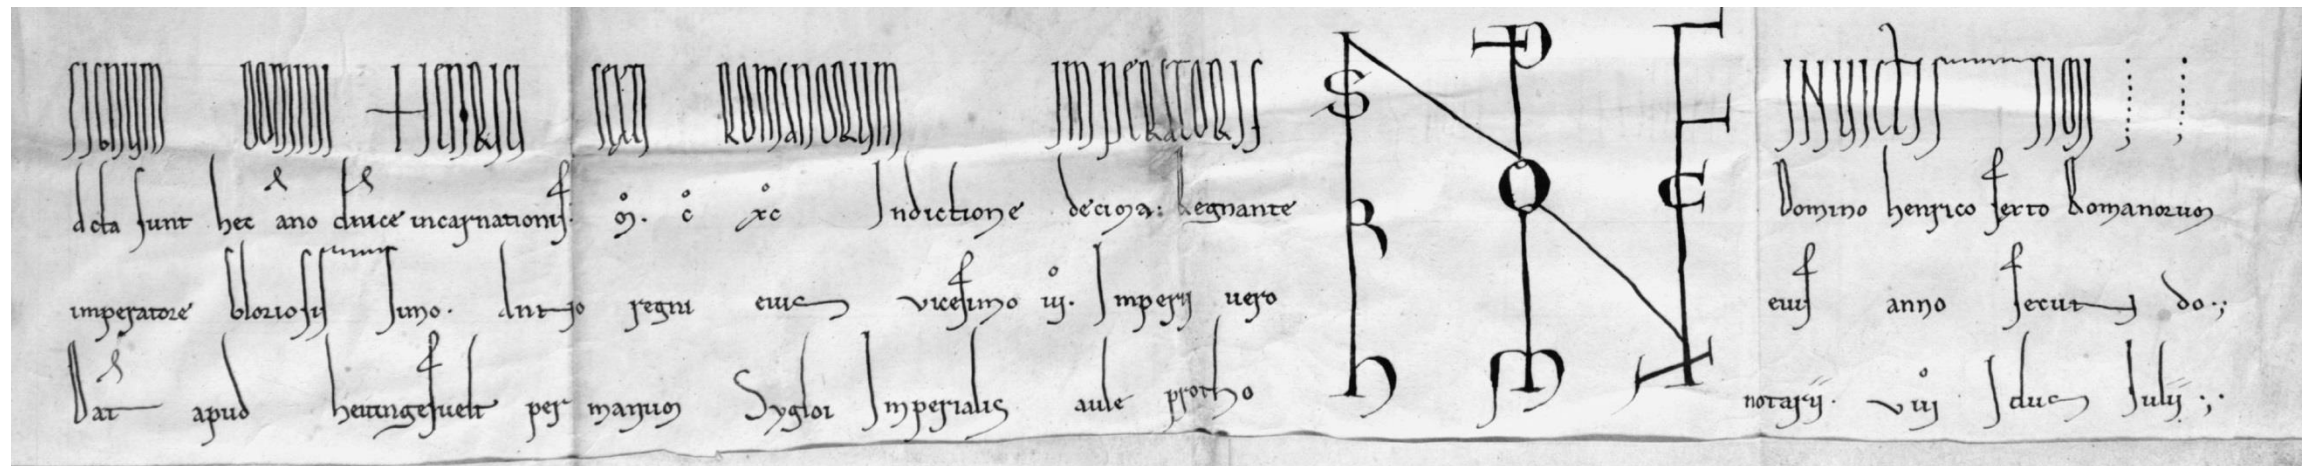 SIGNUM DOMINI HENRICI SEXTI ROMANORUM IMPERATORIS INVICTISSIMI
Acta sunt hec anno dnice incarnationis. M. C XC Indictione decima: Regnante Domino henrico sexto Romanorum
imperatore Gloriosissimo. Anno regni eius vicesimo iii. Imperii uero eius anno secundo
Dat apud heuingesuelt per manum Sygloi Imperialis aule protho notarii. VIII Idus Iulii